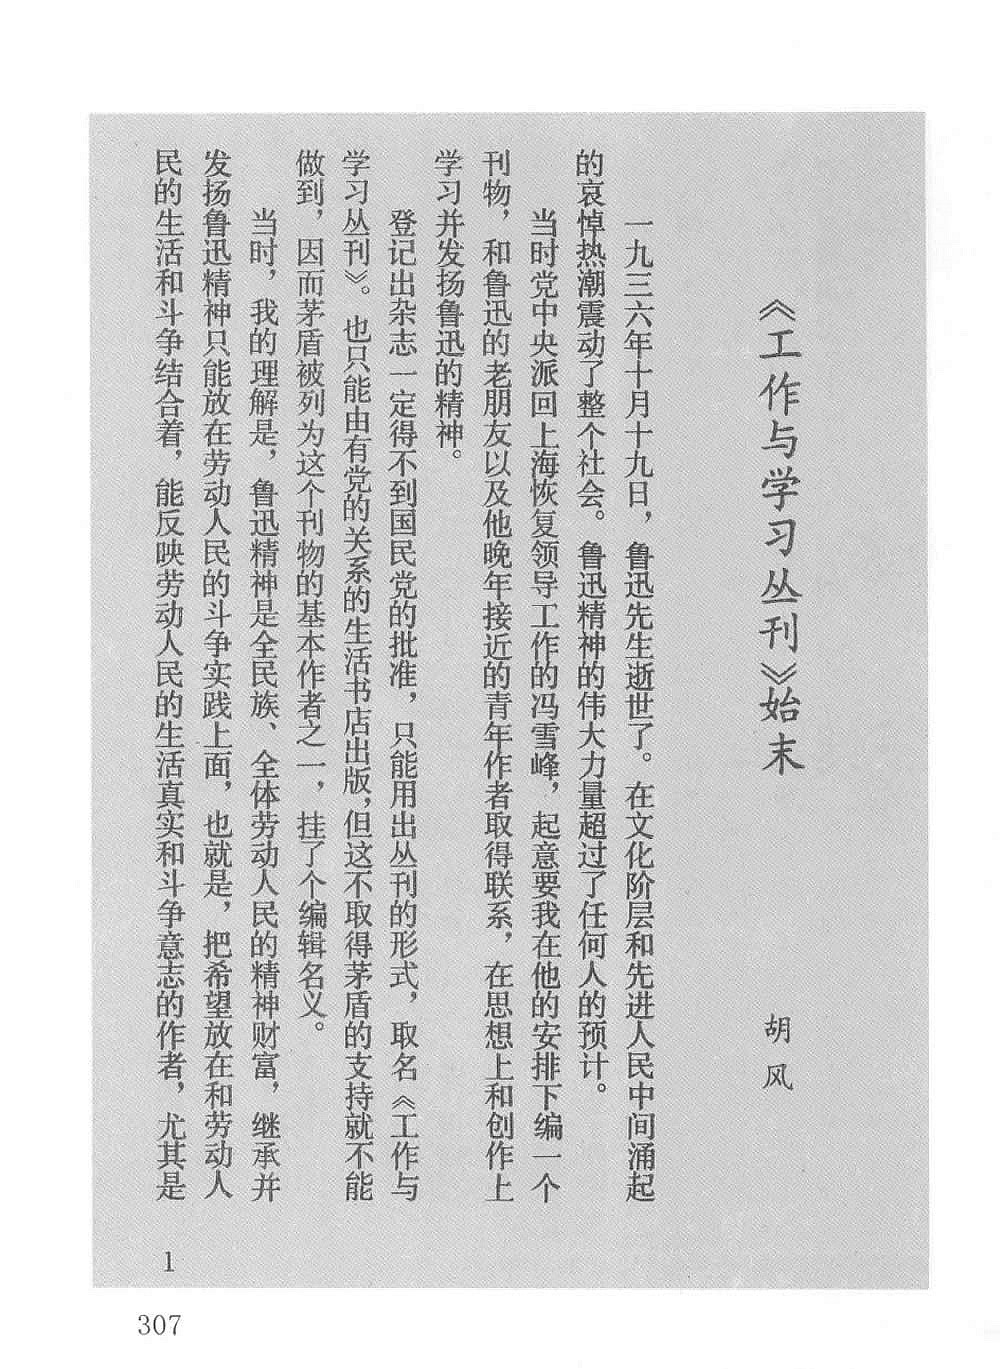 《工作与学习丛刊》始末
胡风
一九三六年十月十九日，鲁迅先生逝世了。在文化阶层和先进人民中间涌起
的哀悼热潮震动了整个社会。鲁迅精神的伟大力量超过了任何人的预计。
当时党中央派回上海恢复领导工作的冯雪峰，起意要我在他的安排下编一个
刊物，和鲁迅的老朋友以及他晚年接近的青年作者取得联系，在思想上和创作上
学习并发扬鲁迅的精神。
登记出杂志一定得不到国民党的批准，只能用出丛刊的形式，取名《工作与
学习丛刊》。也只能由有党的关系的生活书店出版，但这不取得茅盾的支持就不能
做到，因而茅盾被列为这个刊物的基本作者之一，挂了个编辑名义。
当时，我的理解是，鲁迅精神是全民族、全体劳动人民的精神财富，继承并
发扬鲁迅精神只能放在劳动人民的斗争实践上面，也就是，把希望放在和劳动人
民的生活和斗争结合着，能反映劳动人民的生活真实和斗争意志的作者，尤其是
1
307